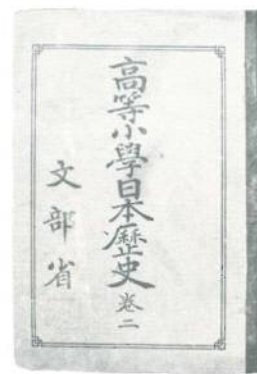 高等小學日本歷史 卷二
文部省